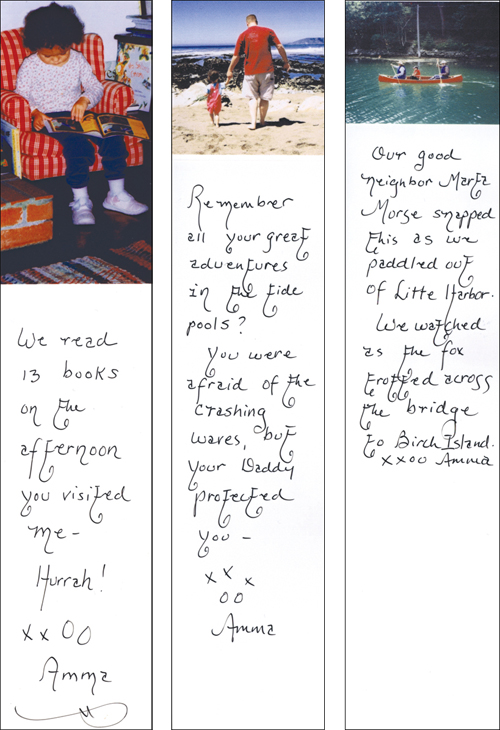 We read
13 books
on the
afternoon
you visited
me-
Hurrah!
xx OO
Amma
Remember
all your great
adventures
in the tide
pools?
You were
afraid of the
crashing
waves, but
your Daddy
protected
you -
x x x
OO
Amma
Our good
neighbor Marta
Morse snapped
this as we
paddled out
of Little Harbor.
We watched
as the fox
trotted across
the bridge
to Birch Island.
xxoo Amma